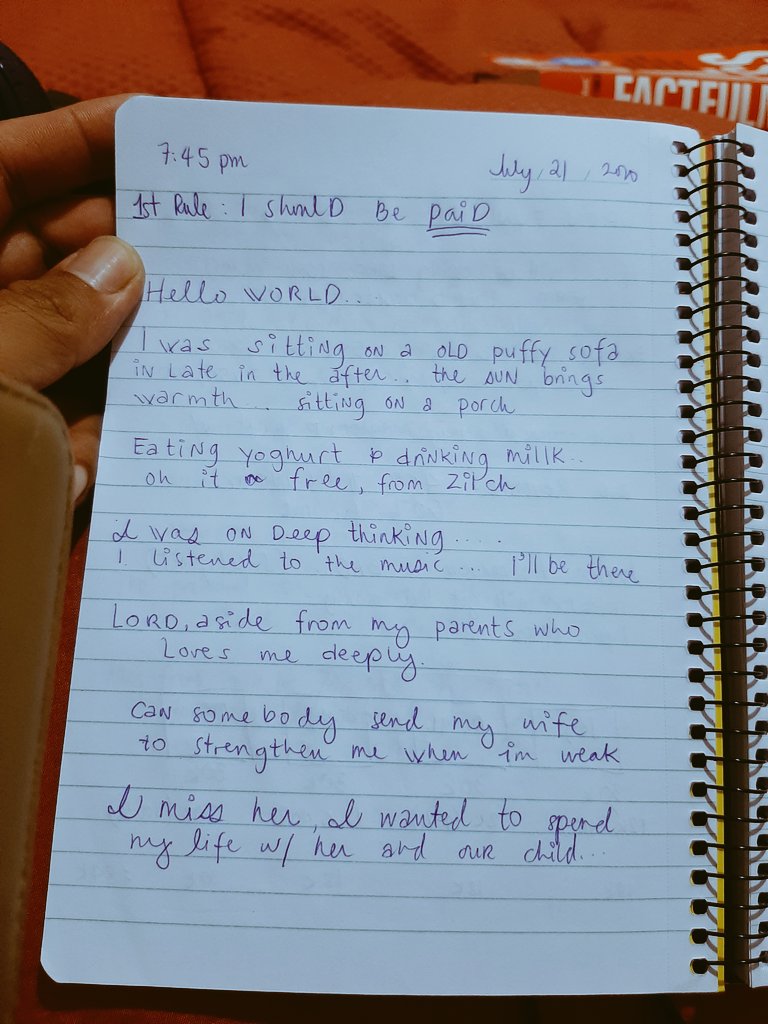 FACTFUL
7:45 pm
July, 21, 2020
1st Rule: I shoulD Be paiD
Hello WORLD..
I was sitting ON a OLD puffy sofa
iN Late in the after.. the SUN brings
warmth.. sitting ON a porch
Eating yoghurt & drinking millk..
oh it free, from Zitch
I was ON Deep thinking.....
I listened to the music... i'll be there
LORD, aside from my parents who
Loves me deeply.
CAN somebody send my wife
to strengthen me when im weak
I miss her, I wanted to spend
my life w/ her and our child...